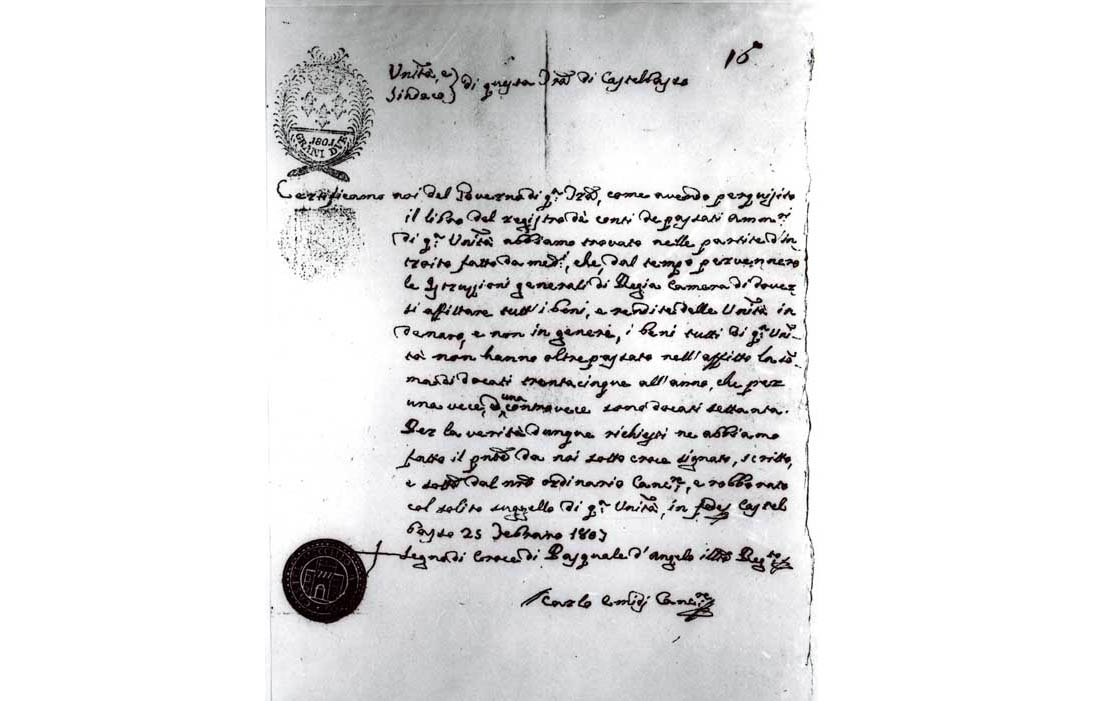 16
Unità, e
Sindaco
di questa Trã di Castelbasso
1801
GRANI DUE
Certificamo noi del Governo di q.ª Trã, come avendo perquisito
il libro del registro dà conti de passati amm.ri
di q.ª Unità abbiamo trovato nelle partite d'in
troito fatto da med.i, che, dal tempo pervennero
le Istruzioni generali di Regia Camera di dover
si affittare tutti i beni, e rendite delle Unità in
denaro, e non in genere, i beni tutti di q.ª Uni-
tà non hanno oltrepassato nell'affitto la so
ma di docati trentacinque all'anno, che per
una vece, e una contravece sono docati settanta.
Per la verità dunque richiesti ne abbiamo
fatto il pñte da noi sotto croce signato, scritto,
e sottõ dal nrõ ordinario Canc.re, e robborato
col solito suggello di q.ª Unità, in fede Castel
basso 25 Febraro 1807
Segno di Croce di Pasquale d'Angelo
Carlo Canc.re